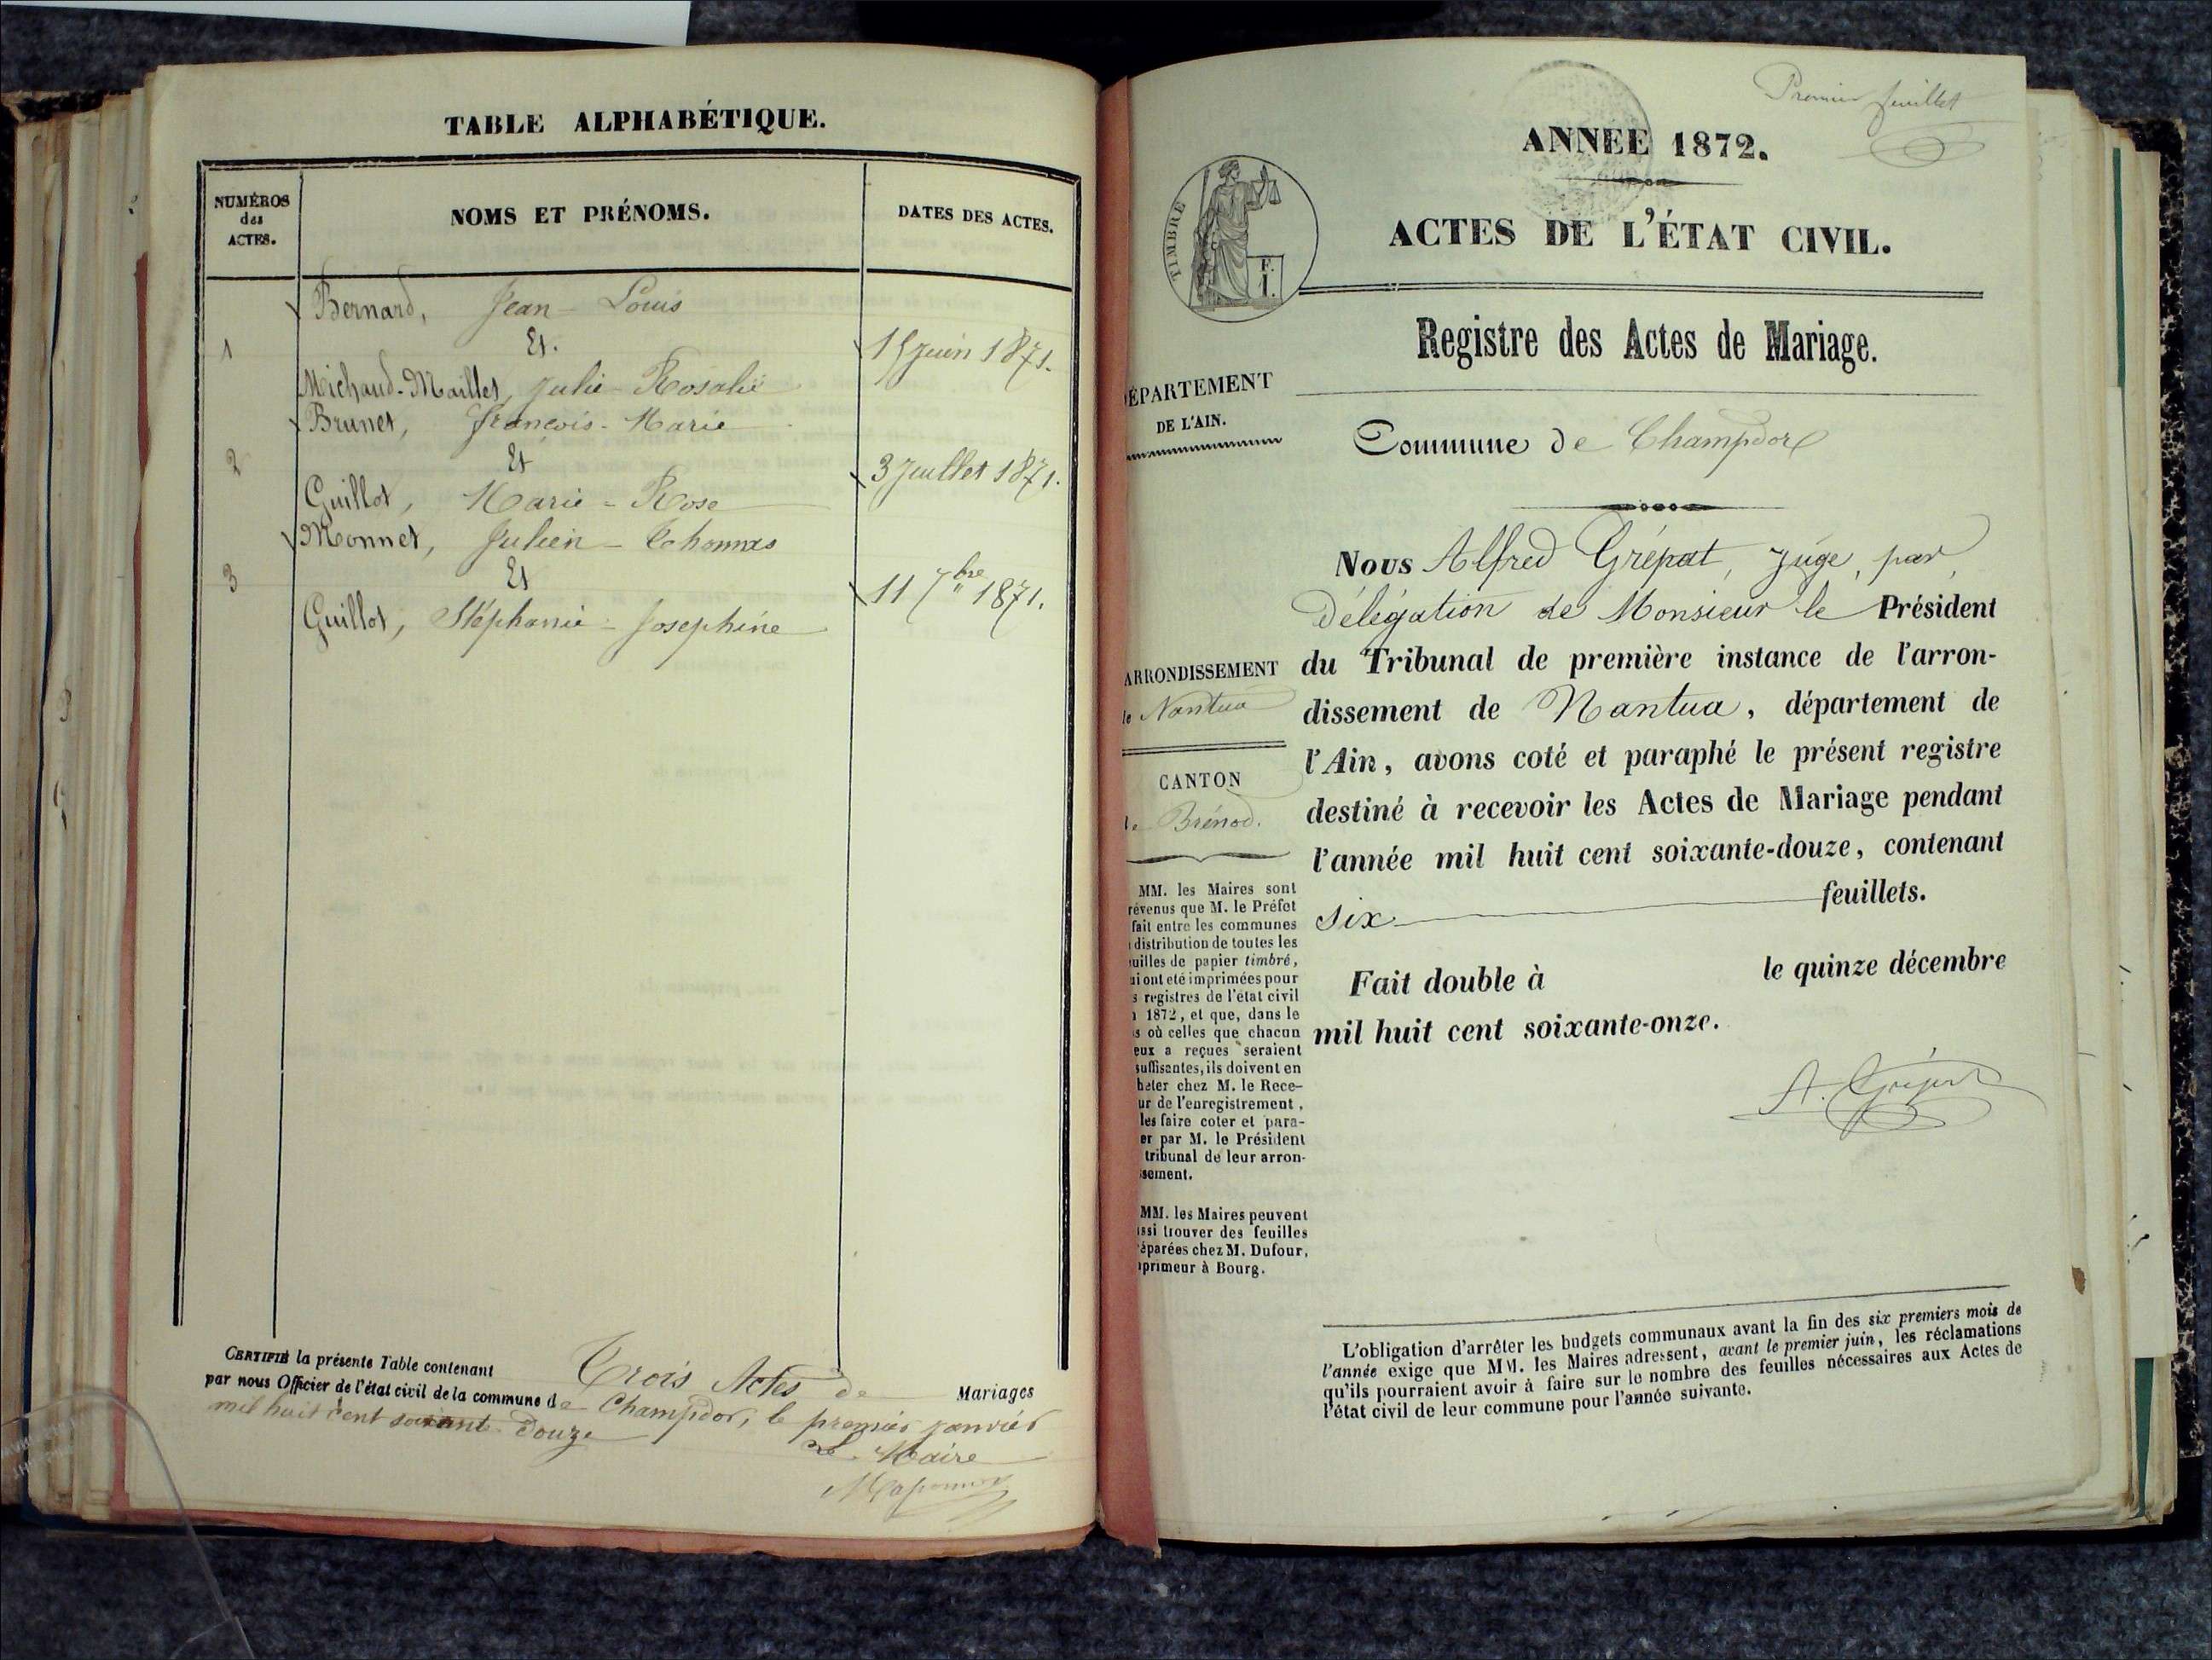 TABLE ALPHABÉTIQUE.
NUMÉROS
des
ACTES.
NOMS ET PRÉNOMS.
DATES DES ACTES.
Bernard, Jean-Louis
1
Et
15 Juin 1871.
Michaud-Maillet, Julie-Rosalie
Brunet, François-Marie
2
Et
3 Juillet 1871.
Guillot, Marie-Rose
Monnet, Julien-Thomas
3
Et
11 7bre 1871.
Guillot, Stéphanie-Josephine
CERTIFIÉ la présente Table contenant Trois Actes de Mariages
par nous Officier de l'état civil de la commune de Champdor, le premier janvier
mil huit cent soixante-douze
Le Maire
Premier feuillet
ANNEE 1872.
TIMBRE
F.
1.
ACTES DE L'ÉTAT CIVIL.
Registre des Actes de Mariage.
DÉPARTEMENT
DE L'AIN.
Commune de Champdor
Nous Alfred Grépat, juge, par
Délégation de Monsieur le Président
du Tribunal de première instance de l'arron-
dissement de Nantua, département de
l'Ain, avons coté et paraphé le présent registre
destiné à recevoir les Actes de Mariage pendant
l'année mil huit cent soixante-douze, contenant
six feuillets.
Fait double à le quinze décembre
mil huit cent soixante-onze.
A. Grépat
ARRONDISSEMENT
de Nantua
CANTON
de Brénod.
MM. les Maires sont
révenus que M. le Préfet
fait entre les communes
distribution de toutes les
uilles de papier timbré,
ui ont été imprimées pour
s registres de l'état civil
1872, et que, dans le
s où celles que chacun
eux a reçues seraient
suffisantes, ils doivent en
heter chez M. le Rece-
ur de l'enregistrement,
les faire coter et para-
er par M. le Président
tribunal de leur arron-
ssement.
MM. les Maires peuvent
ssi trouver des feuilles
éparées chez M. Dufour,
primeur à Bourg.
L'obligation d'arrêter les budgets communaux avant la fin des six premiers mois de
l'année exige que MM. les Maires adressent, avant le premier juin, les réclamations
qu'ils pourraient avoir à faire sur le nombre des feuilles nécessaires aux Actes de
l'état civil de leur commune pour l'année suivante.